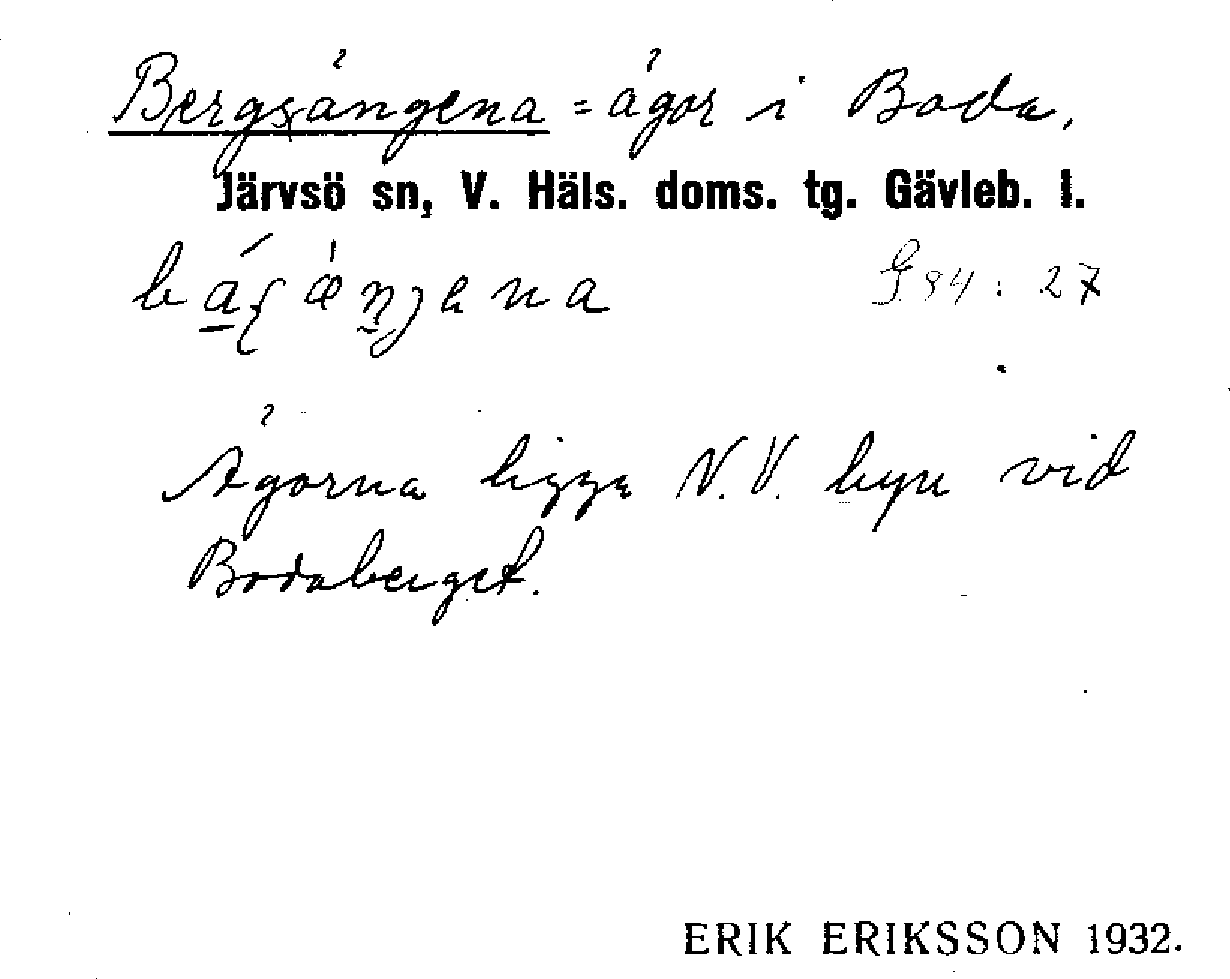 Bergsängena = ägor i Boda,
Järvsö sn, V. Häls. doms. tg. Gävleb. l.
G 84 : 27
Ägorna ligga N.V. byn vid
Bodaberget.
ERIK ERIKSSON 1932.